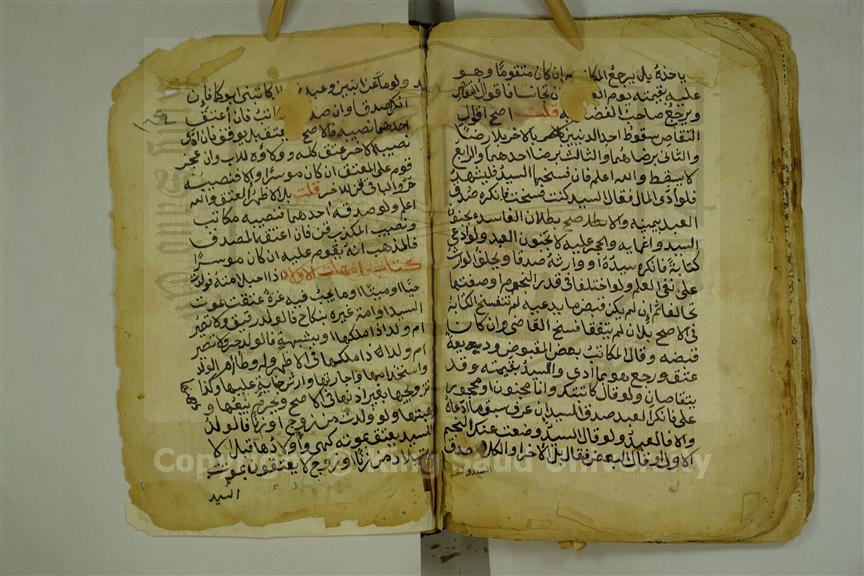 ياخذه بل يرجع المكاتب إن كان متقوما وهو
عليه بقيمته يوم العتق فان تجانسا فاقوال التقاص
ويرجع صاحب الفضل به قلت اصح اقوال
التقاص سقوط احد الدينين بالاخر بلا رضا
والثاني برضاهما والثالث برضا احدهما والرابع
لا يسقط والله اعلم فان فسخها السيد فليشهد
فلو ادى المال فقال السيد كنت فسخت فانكره صدق
العبد بيمينه والاصح بطلان الفاسدة بجنون
السيد واغمائه والحجر عليه لا بجنون العبد ولو ادعى
كتابة فانكره سيده او وارثه صدقا ويحلف الوارث
على نفي العلم ولو اختلفا في قدر النجوم او صفتها
تحالفا ثم إن لم يكن قبض ما يدعيه لم تنفسخ الكتابة
في الاصح بل ان لم يتفقا فسخ القاضي وإن كان
قبضه وقال المكاتب بعض المقبوض وديعة
عتق ورجع هو بما ادى والسيد بقيمته وقد
يتقاصان ولو قال كاتبتك وانا مجنون او محجور
علي فانكر العبد صدق السيد إن عرف سبق ما ادعاه
والا فالعبد ولو قال السيد وضعت عنك النجم
الاول او قال البعض فقال بل الاخر او الكل صدق
السيد ولو
ولو مات عن ابنين وعبد فقال كاتبني ابوكما فإن
انكرا صدقا وان صدقاه فمكاتب فان أعتق
احدهما نصيبه فالاصح لا يعتق بل يوقف فان ادى
نصيب الاخر عتق كله وولاؤه للاب وان عجز
قوم على المعتق ان كان موسرا والا فنصيبه
حر والباقي قن للاخر قلت بل الاظهر العتق والله
اعلم ولو صدقه احدهما فنصيبه مكاتب
ونصيب المكذب قن فان اعتقه المصدق
فالمذهب انه يقوم عليه ان كان موسرا
كتاب امهات الاولاد اذا احبل امته فولدت
حيا او ميتا او ما يجب فيه غرة عتقت بموت
السيد او امة غيره بنكاح فالولد رقيق ولا تصير
ام ولد اذا ملكها او بشبهة فالولد حر ولا تصير
ام ولد اذا ملكها في الاظهر وله وطء ام الولد
واستخدامها واجارتها وارش جناية عليها وكذا
تزويجها بغير اذنها في الاصح ويحرم بيعها و
هبتها ولو ولدت من زوج او زنا فالولد
للسيد يعتق بموته كهي واولادها قبل الا
ستيلاد من زنا او زوج لا يعتقون بموت
السيد